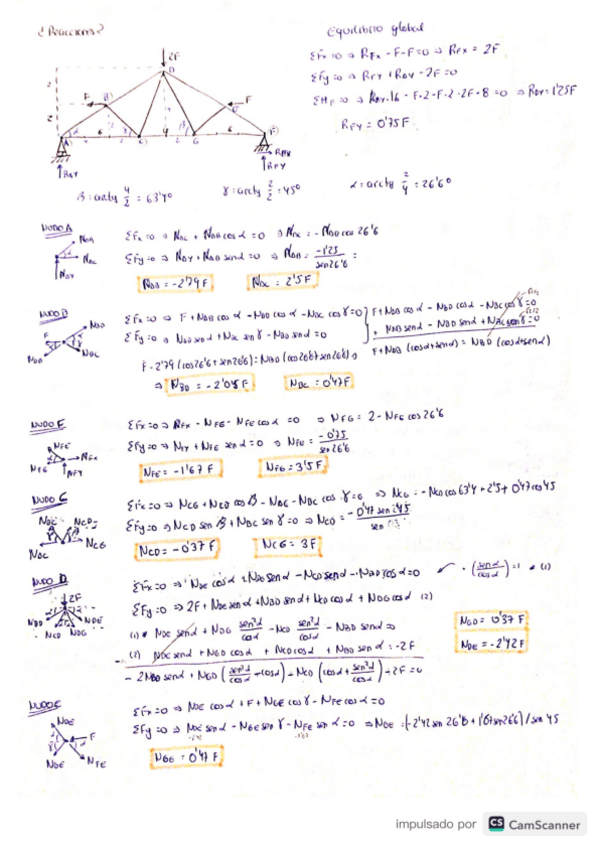 ¿Reacciones?
Equilibrio global
ΣFx=0 ⇒ RFx - F - F = 0 ⇒ RFx = 2F
ΣFy=0 ⇒ RFy + RAy - 2F = 0
ΣMF=0 ⇒ RAy·16 - F·2 - F·2 - 2F·8 = 0 ⇒ RAy = 1'25F
RFy = 0'75F
2F
D
F
B)
E
F
A)
C
G
F)
RAy
RFx
RFy
β = arctg 4/2 = 63'4º
γ = arctg 2/2 = 45º
α = arctg 2/4 = 26'6º
NUDO A
ΣFx=0 ⇒ NAC + NAB cos α = 0 ⇒ NAC = -NAB cos 26'6
ΣFy=0 ⇒ NAY + NAB sen α = 0 ⇒ NAB = -1'25 / sen 26'6 =
NAB = -2'79F
NAC = 2'5F
NUDO B
ΣFx=0 ⇒ F + NAB cos α - NBD cos α - NBC cos γ = 0
F + NAB cos α - NBD cos α - NBC cos γ = 0
ΣFy=0 ⇒ NAB sen α + NBC sen γ - NBD sen α = 0
NAB sen α - NBD sen α + NBC sen γ = 0
F + NAB (cos α + sen α) = NBD (cos α + sen α)
F - 2'79 (cos 26'6 + sen 26'6) = NBD (cos 26'6 + sen 26'6)
⇒ NBD = -2'05F
NBC = 0'47F
NUDO F
ΣFx=0 ⇒ RFx - NFG - NFE cos α = 0 ⇒ NFG = 2 - NFE cos 26'6
ΣFy=0 ⇒ NFY + NFE sen α = 0 ⇒ NFE = -0'75 / sen 26'6
NFE = -1'67F
NFG = 3'5F
NUDO C
ΣFx=0 ⇒ NCG + NCD cos β - NAC - NBC cos γ = 0 ⇒ NCG = -NCD cos 63'4 + 2'5 + 0'47 cos 45
ΣFy=0 ⇒ NCD sen β + NBC sen γ = 0 ⇒ NCD = -0'47 sen 45 / sen
NCD = -0'37F
NCG = 3F
NUDO D
ΣFx=0 ⇒ NDE cos α + NDG sen α - NCD sen α - NBD cos α = 0
· (sen α / cos α) = 1 · (1)
ΣFy=0 ⇒ 2F + NDE sen α + NBD sen α + NCD cos α + NDG cos α (2)
(1) NDE sen α + NDG sen²α/cos α - NCD sen²α/cos α - NBD sen α =
(2) NDE sen α + NGD cos α + NCD cos α + NBD sen α = -2F
- 2NBD sen α + NGD (sen²α/cos α - cos α) - NCD (cos α + sen²α/cos α) - 2F = 0
NGD = 0'37F
NDE = -2'42F
ΣFx=0 ⇒ NDE cos α + F + NGE cos γ - NFE cos α = 0
ΣFy=0 ⇒ NDE sen α - NGE sen γ - NFE sen α = 0 ⇒ NDE = (-2'42 sen 26'6 + 1'67 sen 26'6) / sen 45
NGE = 0'47F
impulsado por CS CamScanner